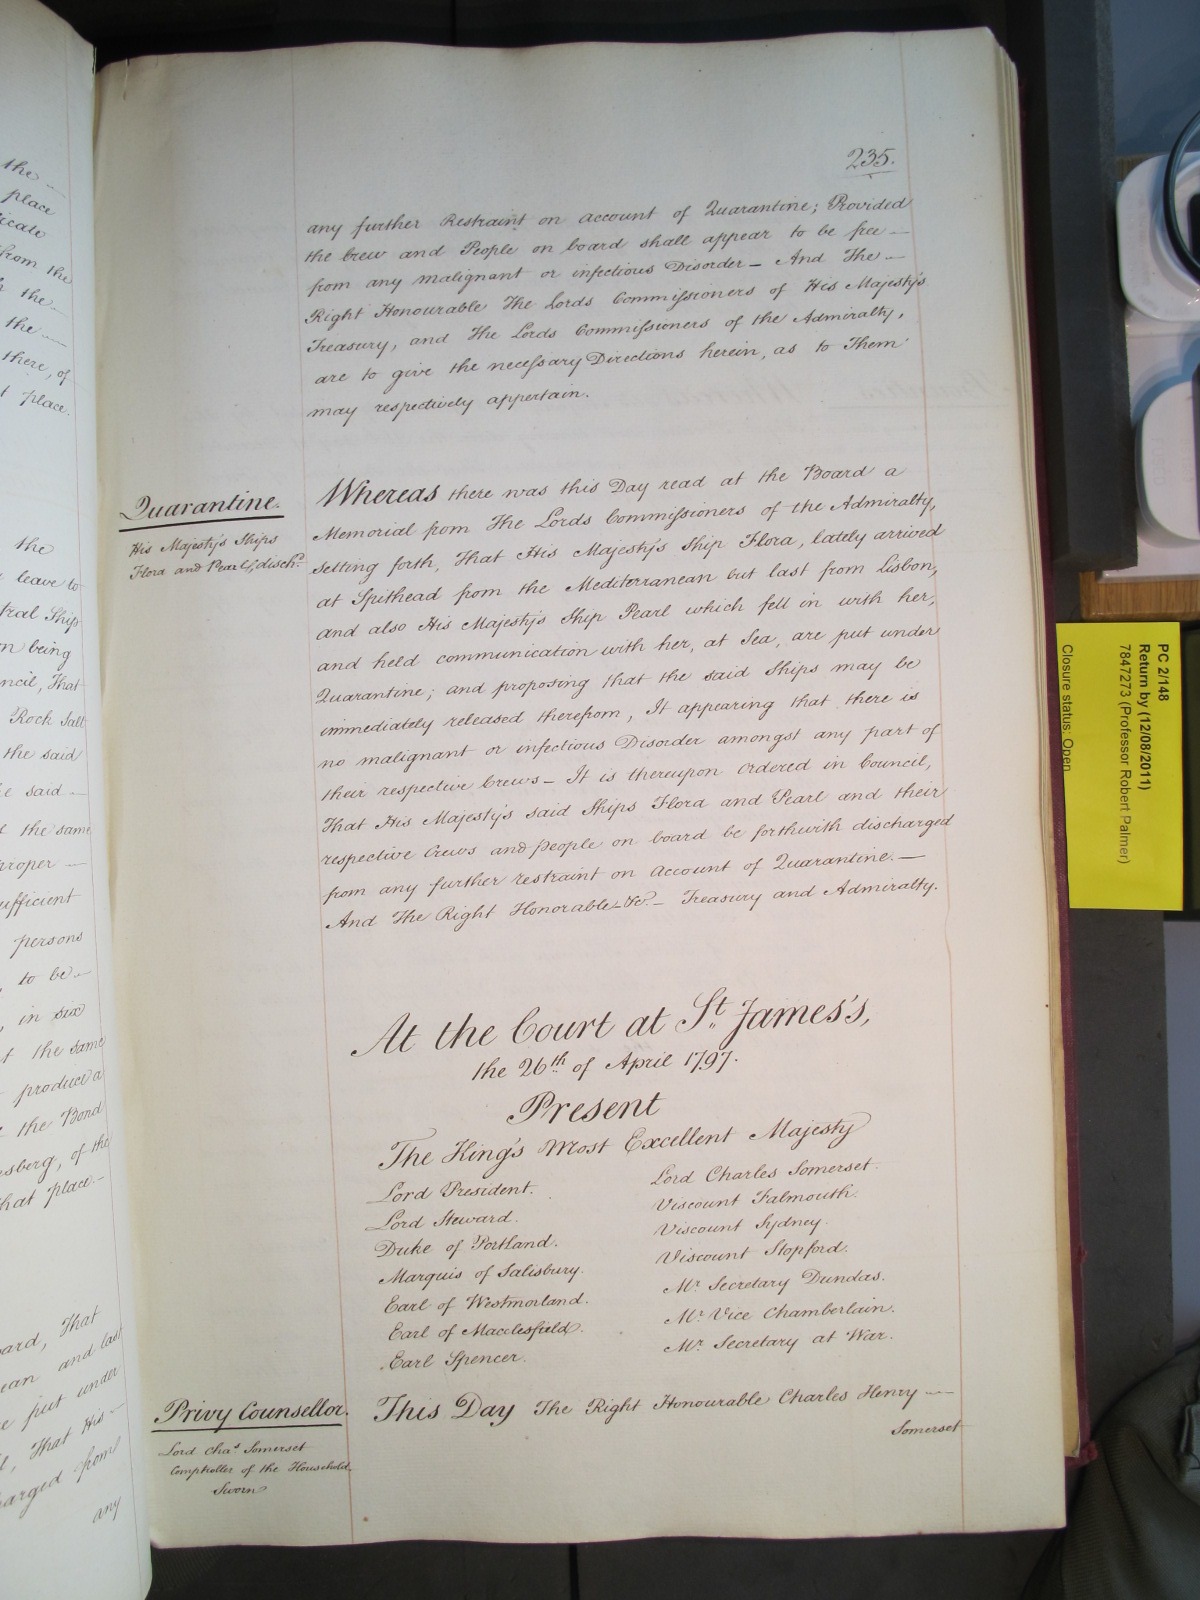 235.
any further Restraint on account of Quarantine; Provided
the Crew and People on board shall appear to be free —
from any malignant or infectious Disorder — And The —
Right Honourable The Lords Commissioners of His Majesty's
Treasury, and The Lords Commissioners of the Admiralty,
are to give the necessary Directions herein, as to Them
may respectively appertain.
Quarantine.
His Majesty's Ships
Flora and Pearl, disch.
Whereas there was this Day read at the Board a
Memorial from The Lords Commissioners of the Admiralty,
setting forth, That His Majesty's Ship Flora, lately arrived
at Spithead from the Mediterranean but last from Lisbon,
and also His Majesty's Ship Pearl which fell in with her,
and held communication with her, at Sea, are put under
Quarantine; and proposing that the said Ships may be
immediately released therefrom, It appearing that there is
no malignant or infectious Disorder amongst any part of
their respective Crews — It is thereupon Ordered in Council,
That His Majesty's said Ships Flora and Pearl and their
respective Crews and People on board be forthwith discharged
from any further restraint on Account of Quarantine. —
And The Right Honorable &c. — Treasury and Admiralty.
At the Court at St. James's,
the 26th of April 1797.
Present
The King's Most Excellent Majesty
Lord President.
Lord Steward.
Duke of Portland.
Marquis of Salisbury.
Earl of Westmorland.
Earl of Macclesfield.
Earl Spencer.
Lord Charles Somerset.
Viscount Falmouth.
Viscount Sydney.
Viscount Stopford.
Mr. Secretary Dundas.
Mr. Vice Chamberlain.
Mr. Secretary at War.
Privy Counsellor.
Lord Chas. Somerset
Comptroller of the Household
Sworn
This Day The Right Honourable Charles Henry —
Somerset
the —
place
from the
the —
the —
there, of
place.
the
leave to
Ship
being
That
Rock Salt
the said
said —
the same
proper —
sufficient
persons
to be —
in six
the same
produce a
the Bond
of the
that place —
That
and last
put under
That His —
from
any
PC 2/148
Return by (12/08/2011)
7847273 (Professor Robert Palmer)
Closure status: Open